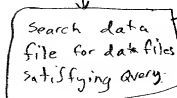 Search data
file for data files
satisfying query.